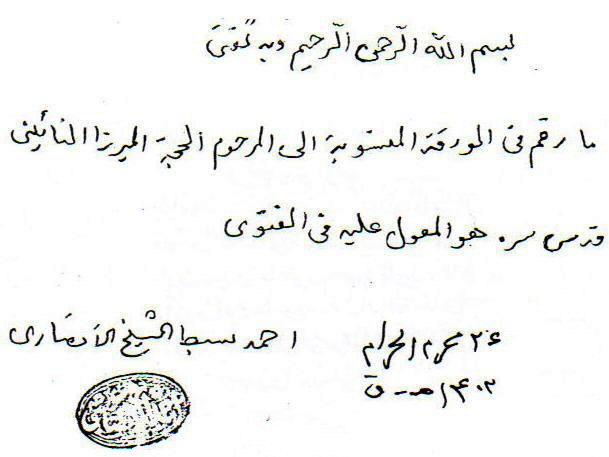 بسم الله الرحمن الرحيم وبه ثقتي
ما رقم في الورقة المنسوبة الى المرحوم الحجة الميرزا النائيني
قدس سره هو المعول عليه في الفتوى
٢٦ محرم الحرام
١٤٠٢ هـ - ق
احمد سبط الشيخ الأنصاري